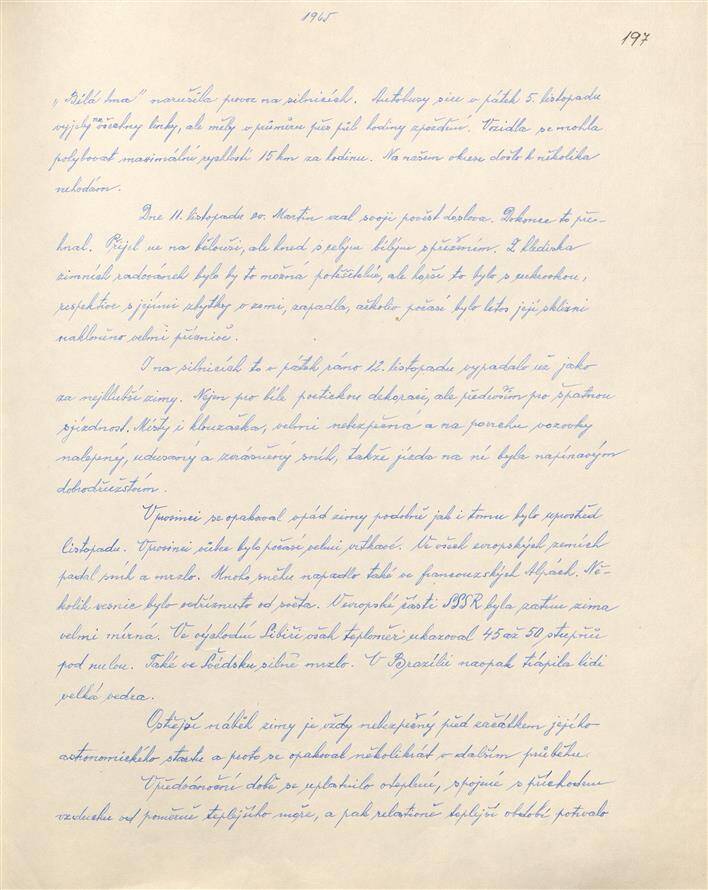 1965
197
„Bílá tma" narušila provoz na silnicích. Autobusy sice v pátek 5. listopadu
vyjely na všechny linky, ale měly v průměru přes půl hodiny zpoždění. Vozidla se mohla
pohybovat maximální rychlostí 15 km za hodinu. Na našem okrese došlo k několika
nehodám.
Dne 11. listopadu sv. Martin vzal svoji pověst doslova. Dokonce to pře-
hnal. Přijel ne na bělouši, ale hned s celým bílým spřežením. Z hlediska
zimních radovánek bylo by to možna potěšitelné, ale horší to bylo s cukrovkou,
respektive s jejími zbytky v zemi, zapadla, ačkoliv počasí bylo letos její sklizni
nakloněno velmi příznivě.
I na silnicích to v pátek ráno 12. listopadu vypadalo už jako
za nejhlubší zimy. Nejen pro bíle poetickou dekoraci, ale především pro špatnou
sjízdnost. Místy i klouzačka, velmi nebezpečná a na povrchu vozovky
nalepený, udusaný a zvrásněný sníh, takže jízda na ní byla napínavým
dobrodružstvím.
V prosinci se opakoval vpád zimy podobně jak i tomu bylo uprostřed
listopadu. V prosinci vůbec bylo počasí velmi vrtkavé. Ve všech evropských zemích
padal sníh a mrzlo. Mnoho sněhu napadlo také ve francouzských Alpách. Ně-
kolik vesnic bylo odříznuto od světa. V evropské části SSSR byla zatím zima
velmi mírná. Ve východní Sibiři však teploměr ukazoval 45 až 50 stupňů
pod nulou. Také ve Švédsku silně mrzlo. V Brazílii naopak trápila lidi
velká vedra.
Ostřejší náběh zimy je vždy nebezpečný před začátkem jejího
astronomického startu a proto se opakoval několikrát v dalším průběhu.
V předvánoční době se uplatnilo oteplení, spojené s příchodem
vzduchu od poměrně teplejšího moře, a pak relativně teplejší období potrvalo